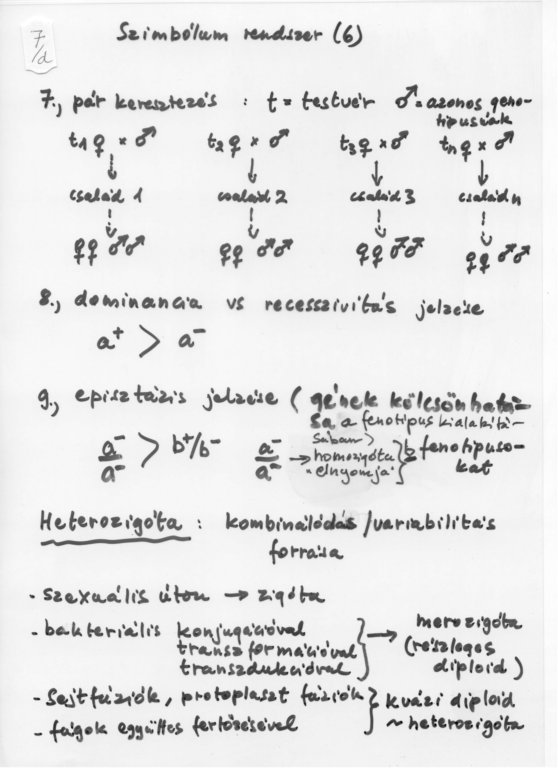 7/d
Szimbólum rendszer (6)
7., pár keresztezés : t = testvér ♂ = azonos geno-
tipusúak
t1♀ × ♂ t2♀ × ♂ t3♀ × ♂ tn♀ × ♂
család 1 család 2 család 3 család n
♀♀ ♂♂ ♀♀ ♂♂ ♀♀ ♂♂ ♀♀ ♂♂
8., dominancia vs recesszivitás jelzése
a+ > a-
9., episztázis jelzése ( gének kölcsönhatá-
sa a fenotipus kialakitá-
sában)
a-/a- > b+/b- a-/a- → homozigóta b fenotipuso-
"elnyomja" kat
Heterozigóta : kombinálódás / variabilitás
forrása
- szexuális úton → zigóta
- bakteriális konjugációval
transzformációval
transzdukcióval
→ merozigóta
(részleges
diploid)
- sejtfúziók, protoplaszt fúziók
- fágok együttes fertőzésével
kvázi diploid
~ heterozigóta